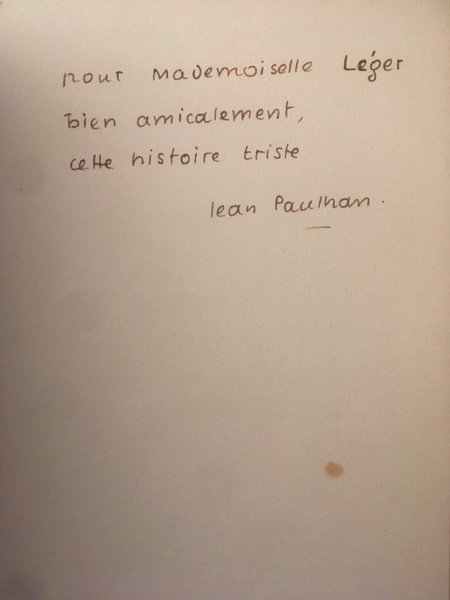 pour Mademoiselle Léger
bien amicalement,
cette histoire triste
Jean Paulhan.